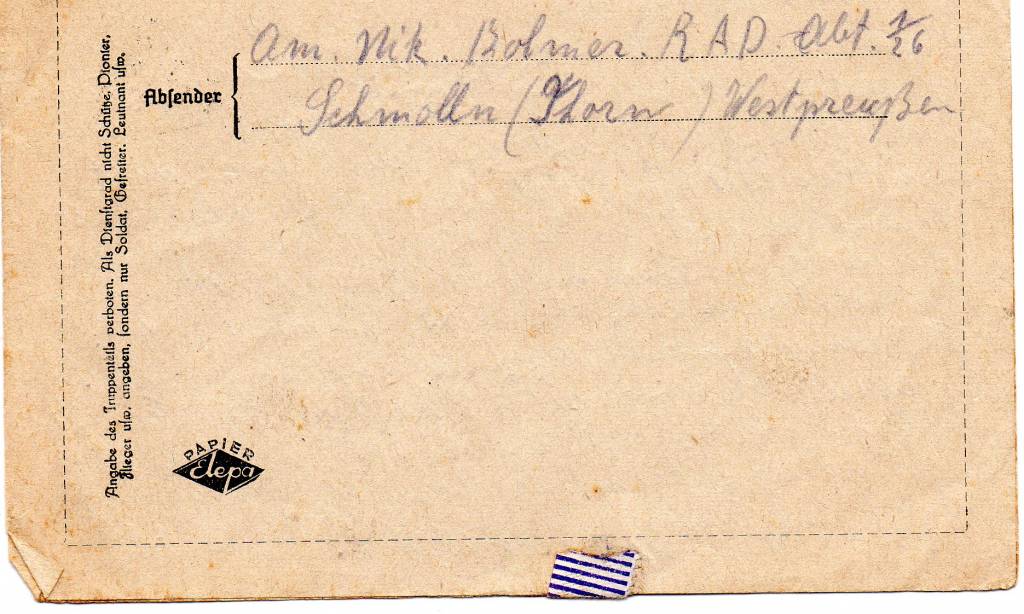 Am. Nik. Bolmer. R A D. Abt. 1/26
Absender
Schmolln (Thorn) Westpreußen
Angabe des Truppenteils verboten. Als Dienstgrad nicht Schütze, Pionier,
Flieger usw. angeben, sondern nur Soldat, Gefreiter, Leutnant usw.
PAPIER
Elepa